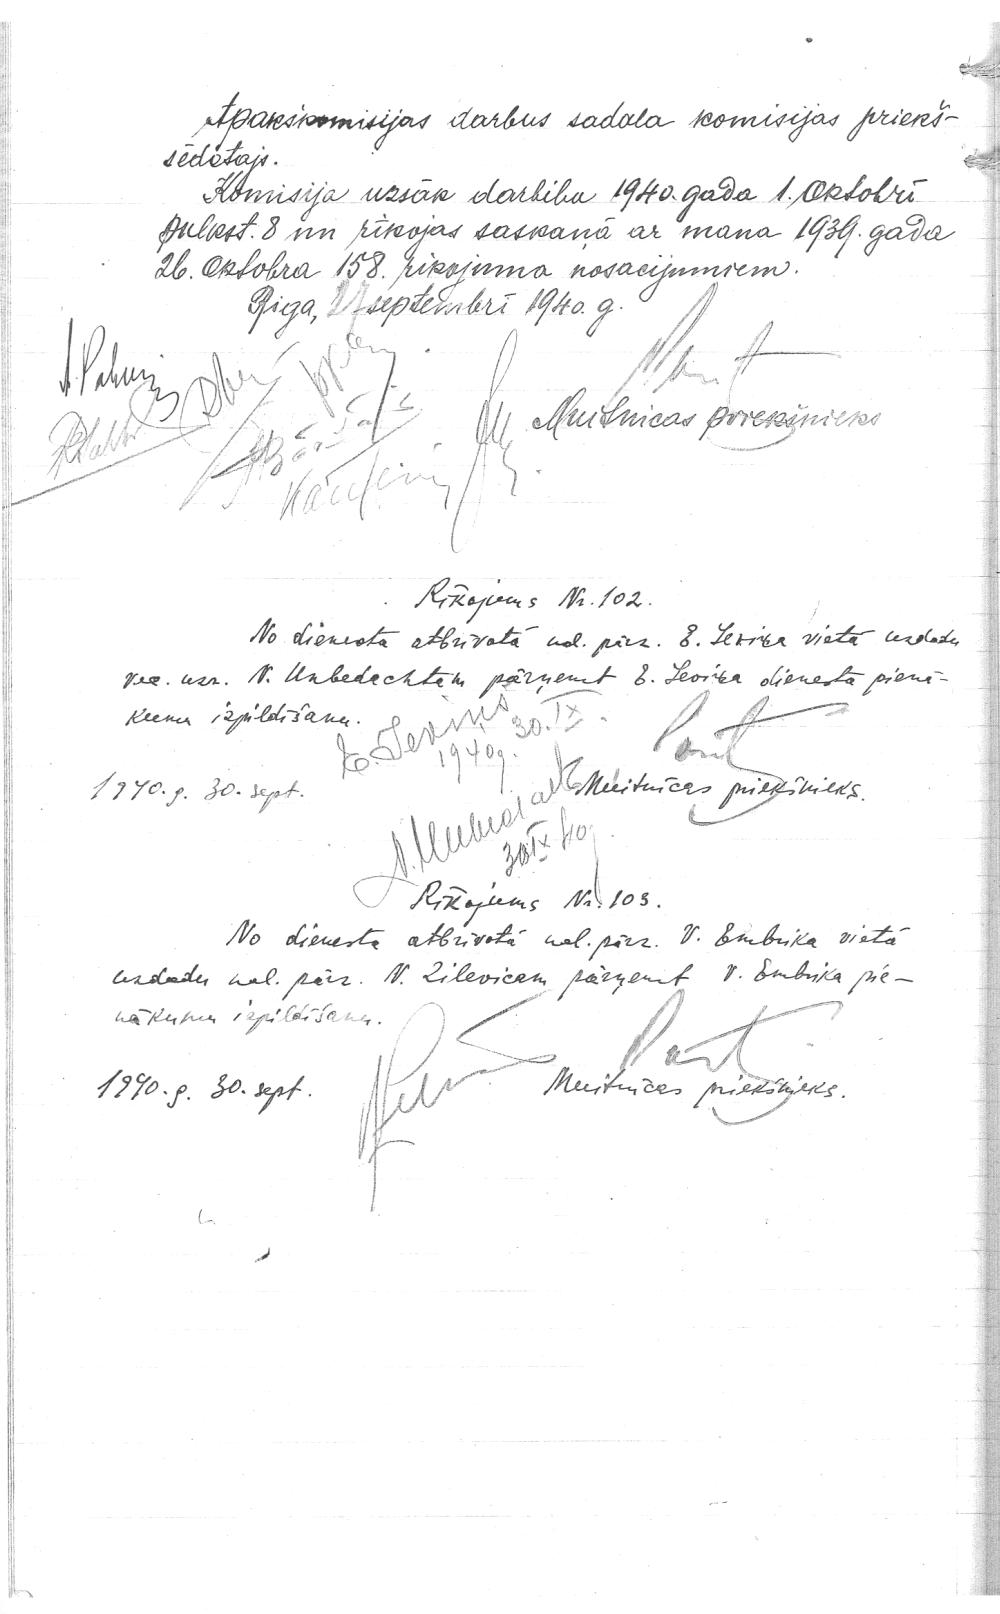 Apakškomisijas darbus sadala komisijas priekš-
sēdētājs.
Komisija uzsāk darbību 1940. gada 1. Oktobrī
pulkst. 8 un rīkojas saskaņā ar mana 1939. gada
26. Oktobra 158. rīkojuma nosacījumiem.
Rīga, 27 septembrī 1940. g.
Muitnicas priekšnieks
Rīkojums Nr. 102.
No dienesta atbrīvotā ual. pārz. E. Seviņa vietā uzdodu
vec. uzr. V. Unbedachtam pārņemt E. Seviņa dienesta pienā-
kumu izpildīšanu.
E. Seviņš 30. IX
1940g.
1940. g. 30. sept.
Muitnīcas priekšnieks.
30 IX 40
Rīkojums Nr. 103.
No dienesta atbrīvotā ual. pārz. V. Embrika vietā
uzdodu ual. pārz. N. Zilevicam pārņemt V. Embrika pie-
nākumu izpildīšanu.
1940. g. 30. sept.
Muitnīcas priekšnieks.